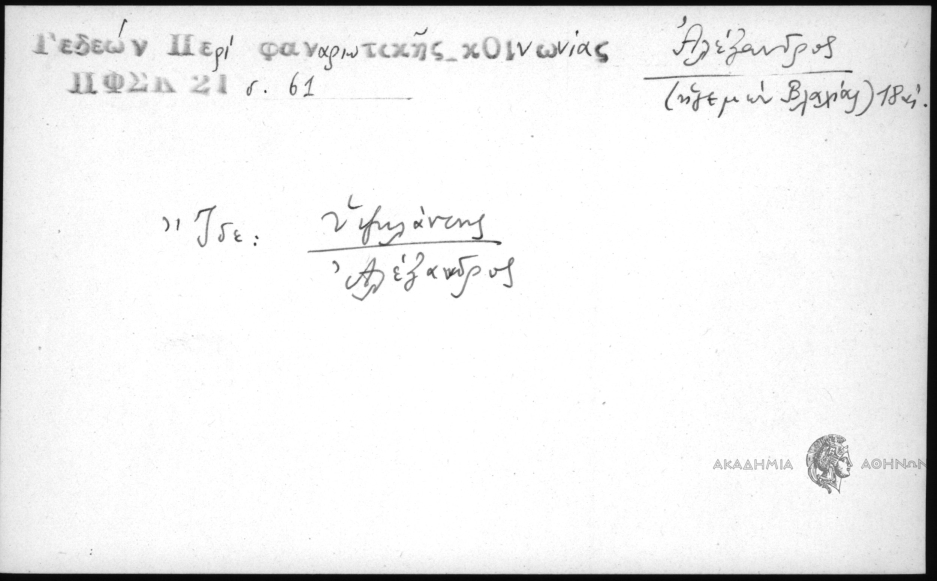 Γεδεών Περί φαναριωτικῆς κοινωνίας
ΠΦΣΚ 21 σ. 61
Ἀλέξανδρος
(ἡγεμών Βλαχίας) 18 αἰ.
Ἴδε: Ὑψηλάντης
Ἀλέξανδρος
ΑΚΑΔΗΜΙΑ ΑΘΗΝΩΝ